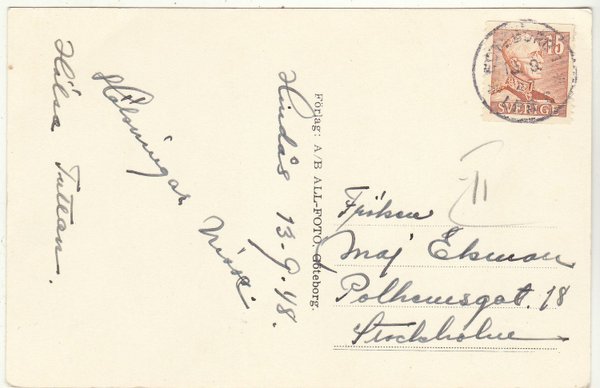 Hälsa Tuttan.
Hälsningar
Hindås 13-9.48.
Förlag: A/B ALL-FOTO, Göteborg.
15
SVERIGE
II
Fröken
Maj Ekman
Polhemsgat. 18
Stockholm